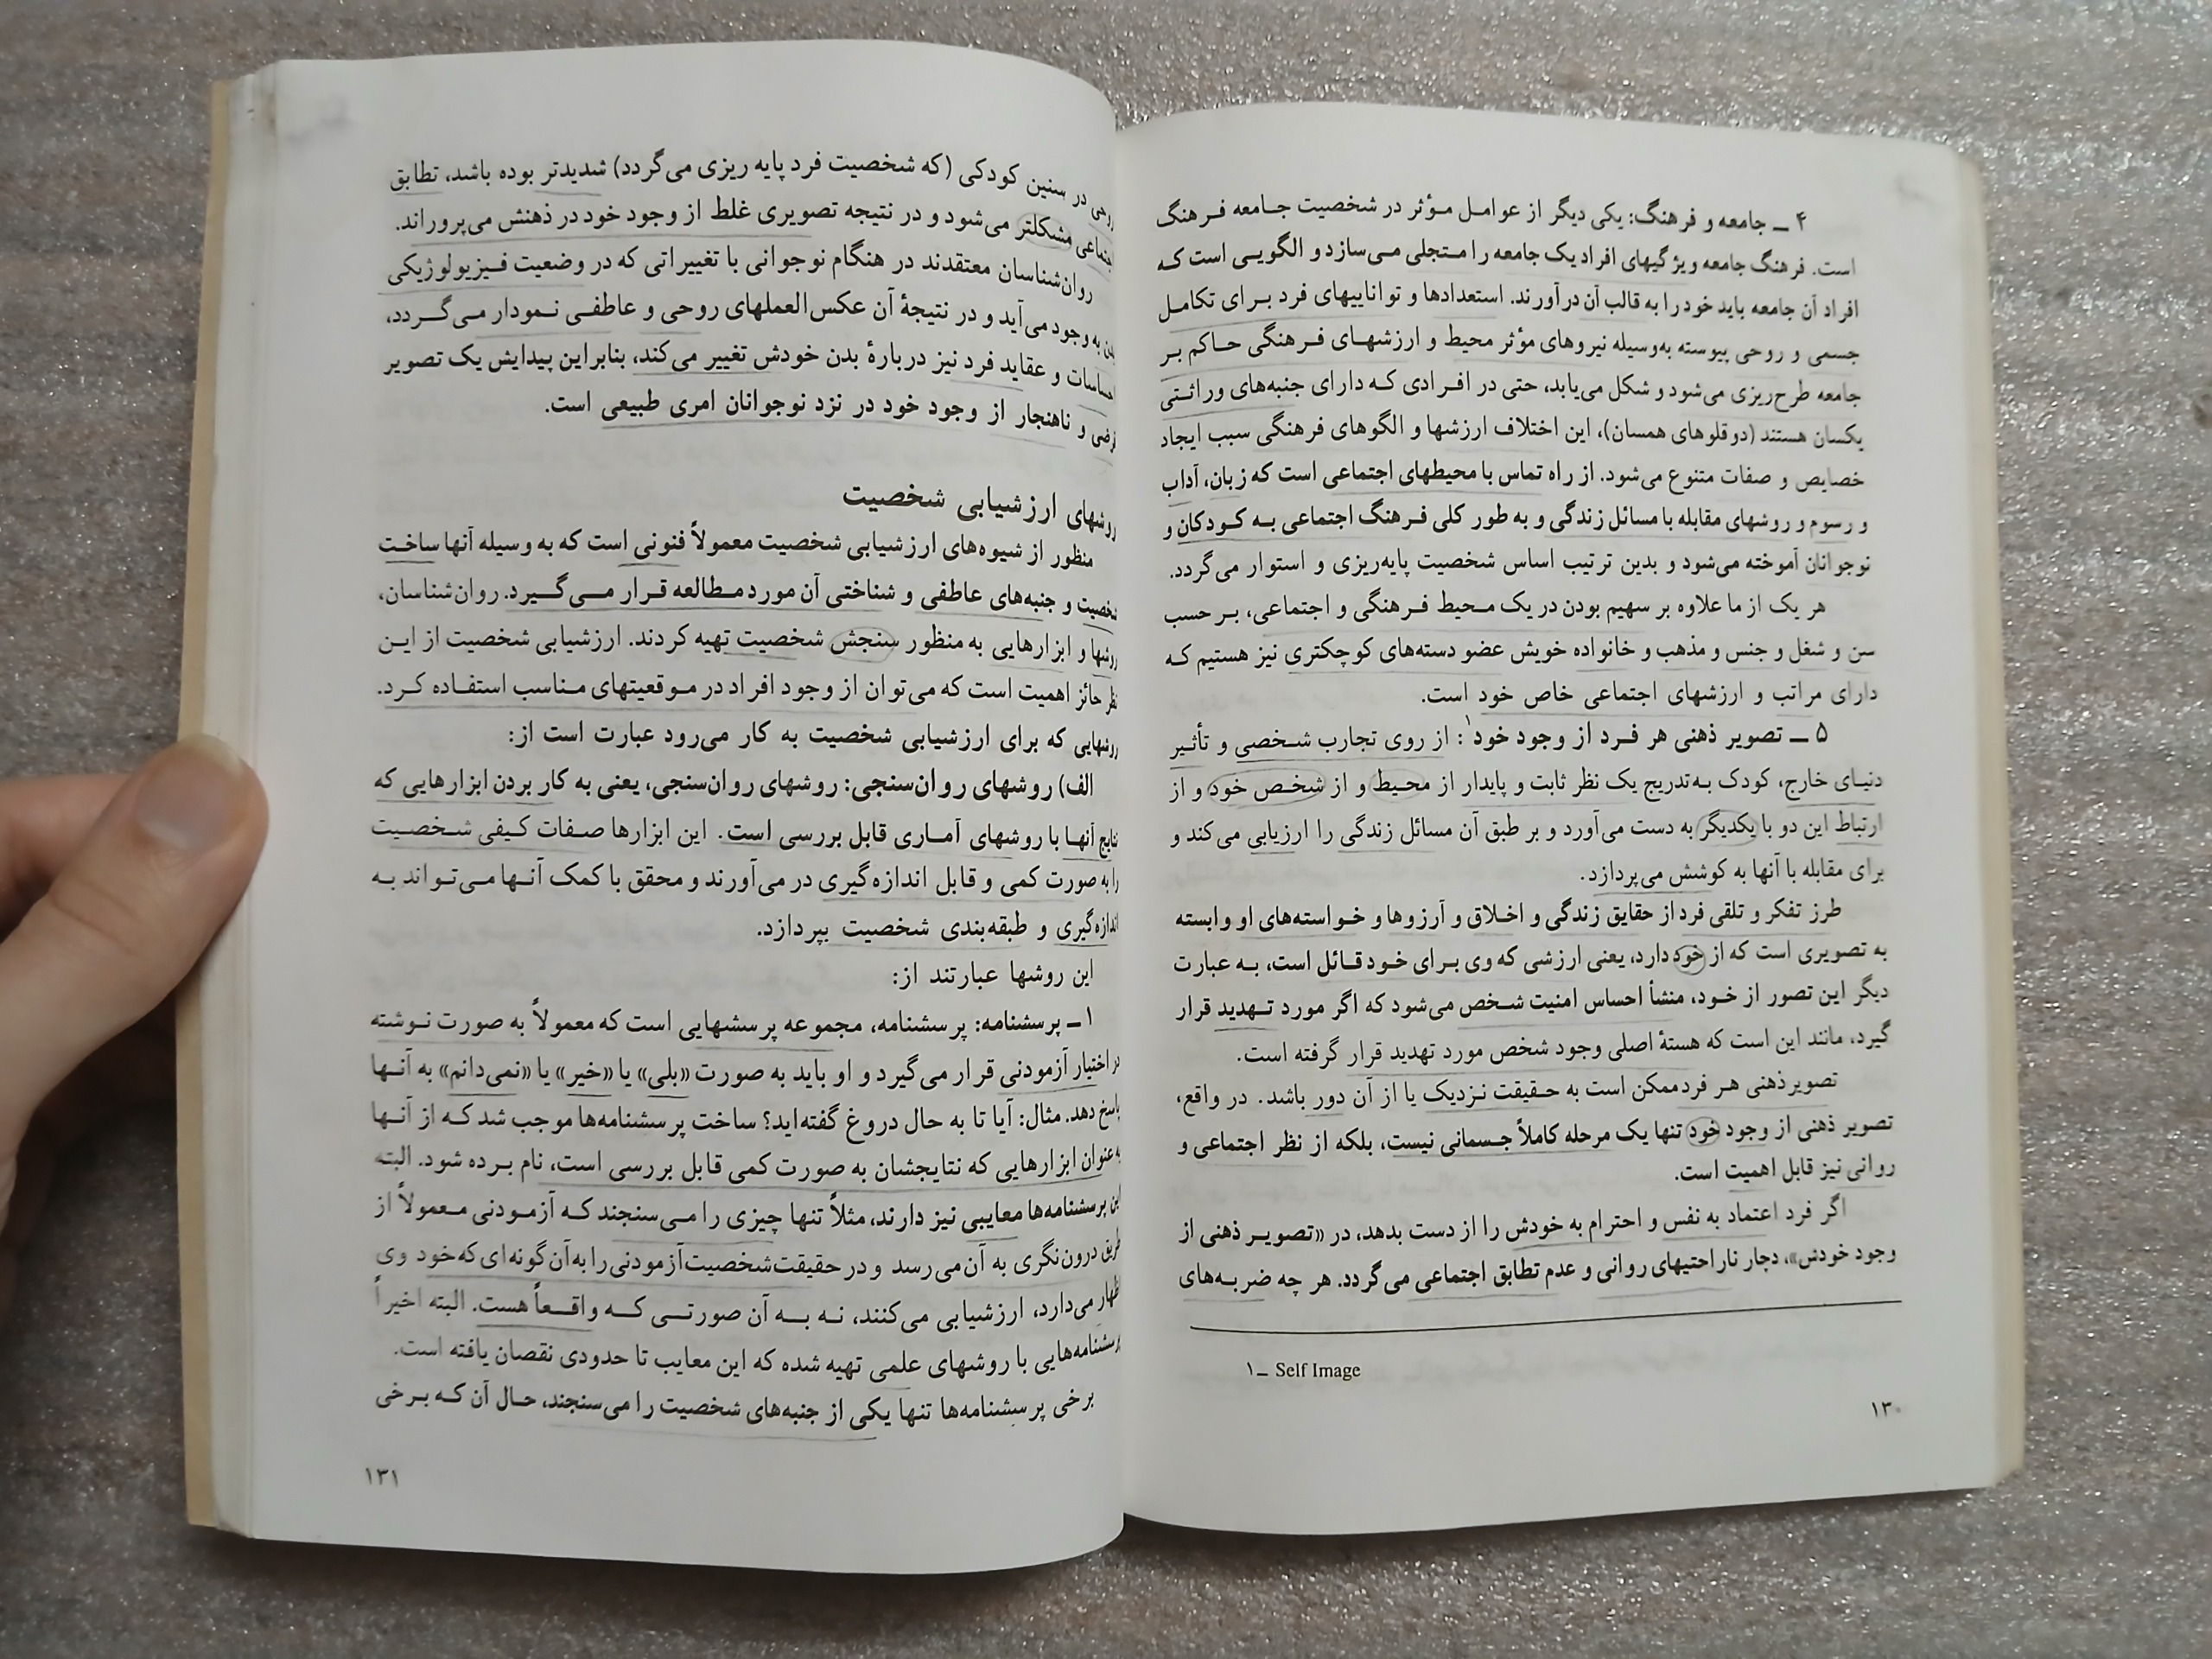 ۴ ــ جامعه و فرهنگ: یکی دیگر از عوامل مؤثر در شخصیت جامعه فرهنگ
است. فرهنگ جامعه ویژگیهای افراد یک جامعه را متجلی می‌سازد و الگویی است که
افراد آن جامعه باید خود را به قالب آن درآورند. استعدادها و تواناییهای فرد برای تکامل
جسمی و روحی پیوسته به‌وسیله نیروهای مؤثر محیط و ارزشهای فرهنگی حاکم بر
جامعه طرح‌ریزی می‌شود و شکل می‌یابد، حتی در افرادی که دارای جنبه‌های وراثتی
یکسان هستند (دوقلوهای همسان)، این اختلاف ارزشها و الگوهای فرهنگی سبب ایجاد
خصایص و صفات متنوع می‌شود. از راه تماس با محیطهای اجتماعی است که زبان، آداب
و رسوم و روشهای مقابله با مسائل زندگی و به طور کلی فرهنگ اجتماعی به کودکان و
نوجوانان آموخته می‌شود و بدین ترتیب اساس شخصیت پایه‌ریزی و استوار می‌گردد.
هر یک از ما علاوه بر سهیم بودن در یک محیط فرهنگی و اجتماعی، بر حسب
سن و شغل و جنس و مذهب و خانواده خویش عضو دسته‌های کوچکتری نیز هستیم که
دارای مراتب و ارزشهای اجتماعی خاص خود است.
۵ ــ تصویر ذهنی هر فرد از وجود خود۱: از روی تجارب شخصی و تأثیر
دنیای خارج، کودک به‌تدریج یک نظر ثابت و پایدار از محیط و از شخص خود و از
ارتباط این دو با یکدیگر به دست می‌آورد و بر طبق آن مسائل زندگی را ارزیابی می‌کند و
برای مقابله با آنها به کوشش می‌پردازد.
طرز تفکر و تلقی فرد از حقایق زندگی و اخلاق و آرزوها و خواسته‌های او وابسته
به تصویری است که از خود دارد، یعنی ارزشی که وی برای خود قائل است، به عبارت
دیگر این تصور از خود، منشأ احساس امنیت شخص می‌شود که اگر مورد تهدید قرار
گیرد، مانند این است که هستهٔ اصلی وجود شخص مورد تهدید قرار گرفته است.
تصویر ذهنی هر فرد ممکن است به حقیقت نزدیک یا از آن دور باشد. در واقع،
تصویر ذهنی از وجود خود تنها یک مرحله کاملاً جسمانی نیست، بلکه از نظر اجتماعی و
روانی نیز قابل اهمیت است.
اگر فرد اعتماد به نفس و احترام به خودش را از دست بدهد، در «تصویر ذهنی از
وجود خودش»، دچار ناراحتیهای روانی و عدم تطابق اجتماعی می‌گردد. هر چه ضربه‌های
۱ــ Self Image
۱۳۰
روحی در سنین کودکی (که شخصیت فرد پایه ریزی می‌گردد) شدیدتر بوده باشد، تطابق
اجتماعی مشکلتر می‌شود و در نتیجه تصویری غلط از وجود خود در ذهنش می‌پروراند.
روان‌شناسان معتقدند در هنگام نوجوانی با تغییراتی که در وضعیت فیزیولوژیکی
بدن به وجود می‌آید و در نتیجهٔ آن عکس‌العملهای روحی و عاطفی نمودار می‌گردد،
احساسات و عقاید فرد نیز دربارهٔ بدن خودش تغییر می‌کند، بنابراین پیدایش یک تصویر
و ناهنجار از وجود خود در نزد نوجوانان امری طبیعی است.
روشهای ارزشیابی شخصیت
منظور از شیوه‌های ارزشیابی شخصیت معمولاً فنونی است که به وسیله آنها ساخت
شخصیت و جنبه‌های عاطفی و شناختی آن مورد مطالعه قرار می‌گیرد. روان‌شناسان،
روشها و ابزارهایی به منظور سنجش شخصیت تهیه کردند. ارزشیابی شخصیت از این
نظر حائز اهمیت است که می‌توان از وجود افراد در موقعیتهای مناسب استفاده کرد.
روشهایی که برای ارزشیابی شخصیت به کار می‌رود عبارت است از:
الف) روشهای روان‌سنجی: روشهای روان‌سنجی، یعنی به کار بردن ابزارهایی که
نتایج آنها با روشهای آماری قابل بررسی است. این ابزارها صفات کیفی شخصیت
را به صورت کمی و قابل اندازه‌گیری در می‌آورند و محقق با کمک آنها می‌تواند به
اندازه‌گیری و طبقه‌بندی شخصیت بپردازد.
این روشها عبارتند از:
۱ــ پرسشنامه: پرسشنامه، مجموعه پرسشهایی است که معمولاً به صورت نوشته
در اختیار آزمودنی قرار می‌گیرد و او باید به صورت «بلی» یا «خیر» یا «نمی‌دانم» به آنها
پاسخ دهد. مثال: آیا تا به حال دروغ گفته‌اید؟ ساخت پرسشنامه‌ها موجب شد که از آنها
به‌عنوان ابزارهایی که نتایجشان به صورت کمی قابل بررسی است، نام برده شود. البته
این پرسشنامه‌ها معایبی نیز دارند، مثلاً تنها چیزی را می‌سنجند که آزمودنی معمولاً از
طریق درون‌نگری به آن می‌رسد و در حقیقت شخصیت آزمودنی را به آن گونه‌ای که خود وی
اظهار می‌دارد، ارزشیابی می‌کنند، نه به آن صورتی که واقعاً هست. البته اخیراً
پرسشنامه‌هایی با روشهای علمی تهیه شده که این معایب تا حدودی نقصان یافته است.
برخی پرسشنامه‌ها تنها یکی از جنبه‌های شخصیت را می‌سنجند، حال آن که برخی
۱۳۱